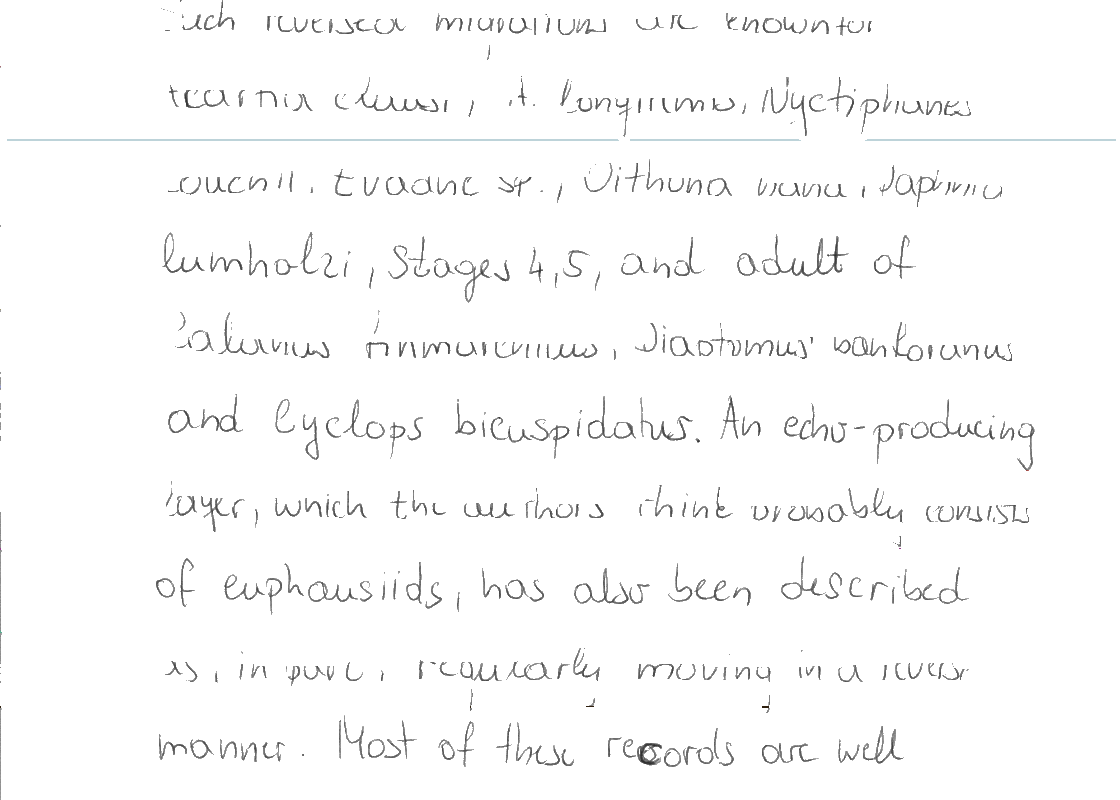 Such reversed migrations are known for
Acartia clausi, A. longiremis, Nyctiphanes
couchii, Evadne sp., Oithona nana, Daphnia
lumholzi, Stages 4,5, and adult of
Calanus finmarchicus, Diaptomus bankoranus
and Cyclops bicuspidatus. An echo-producing
layer, which the authors think probably consists
of euphausiids, has also been described
as, in part, regularly moving in a reverse
manner. Most of these records are well